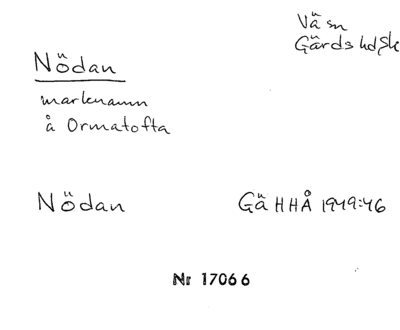 Vä sn
Gärds hd, Sk
Nödan
marknamn
å Ormatofta
Nödan
Gä HHÅ 1949:46
Nr 17066